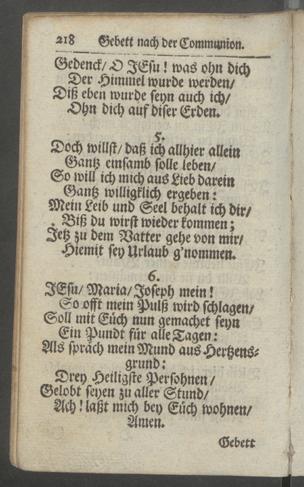 218 Gebett nach der Communion.
Gedenck/ O JEsu! was ohn dich
Der Himmel wurde werden/
Diß eben wurde seyn auch ich/
Ohn dich auf diser Erden.
5.
Doch willst/ daß ich allhier allein
Gantz einsamb solle leben/
So will ich mich aus Lieb darein
Gantz williglich ergeben:
Mein Leib und Seel behalt ich dir/
Biß du wirst wieder kommen;
Jetz zu dem Vatter gehe von mir/
Hiemit sey Urlaub g'nommen.
6.
JEsu/ Maria/ Joseph mein!
So offt mein Pulß wird schlagen/
Soll mit Eüch nun gemachet seyn
Ein Pundt für alle Tagen:
Als spräch mein Mund aus Hertzens-
grund:
Drey Heiligste Persohnen/
Gelobt seyen zu aller Stund/
Ach! laßt mich bey Eüch wohnen/
Amen.
Gebett